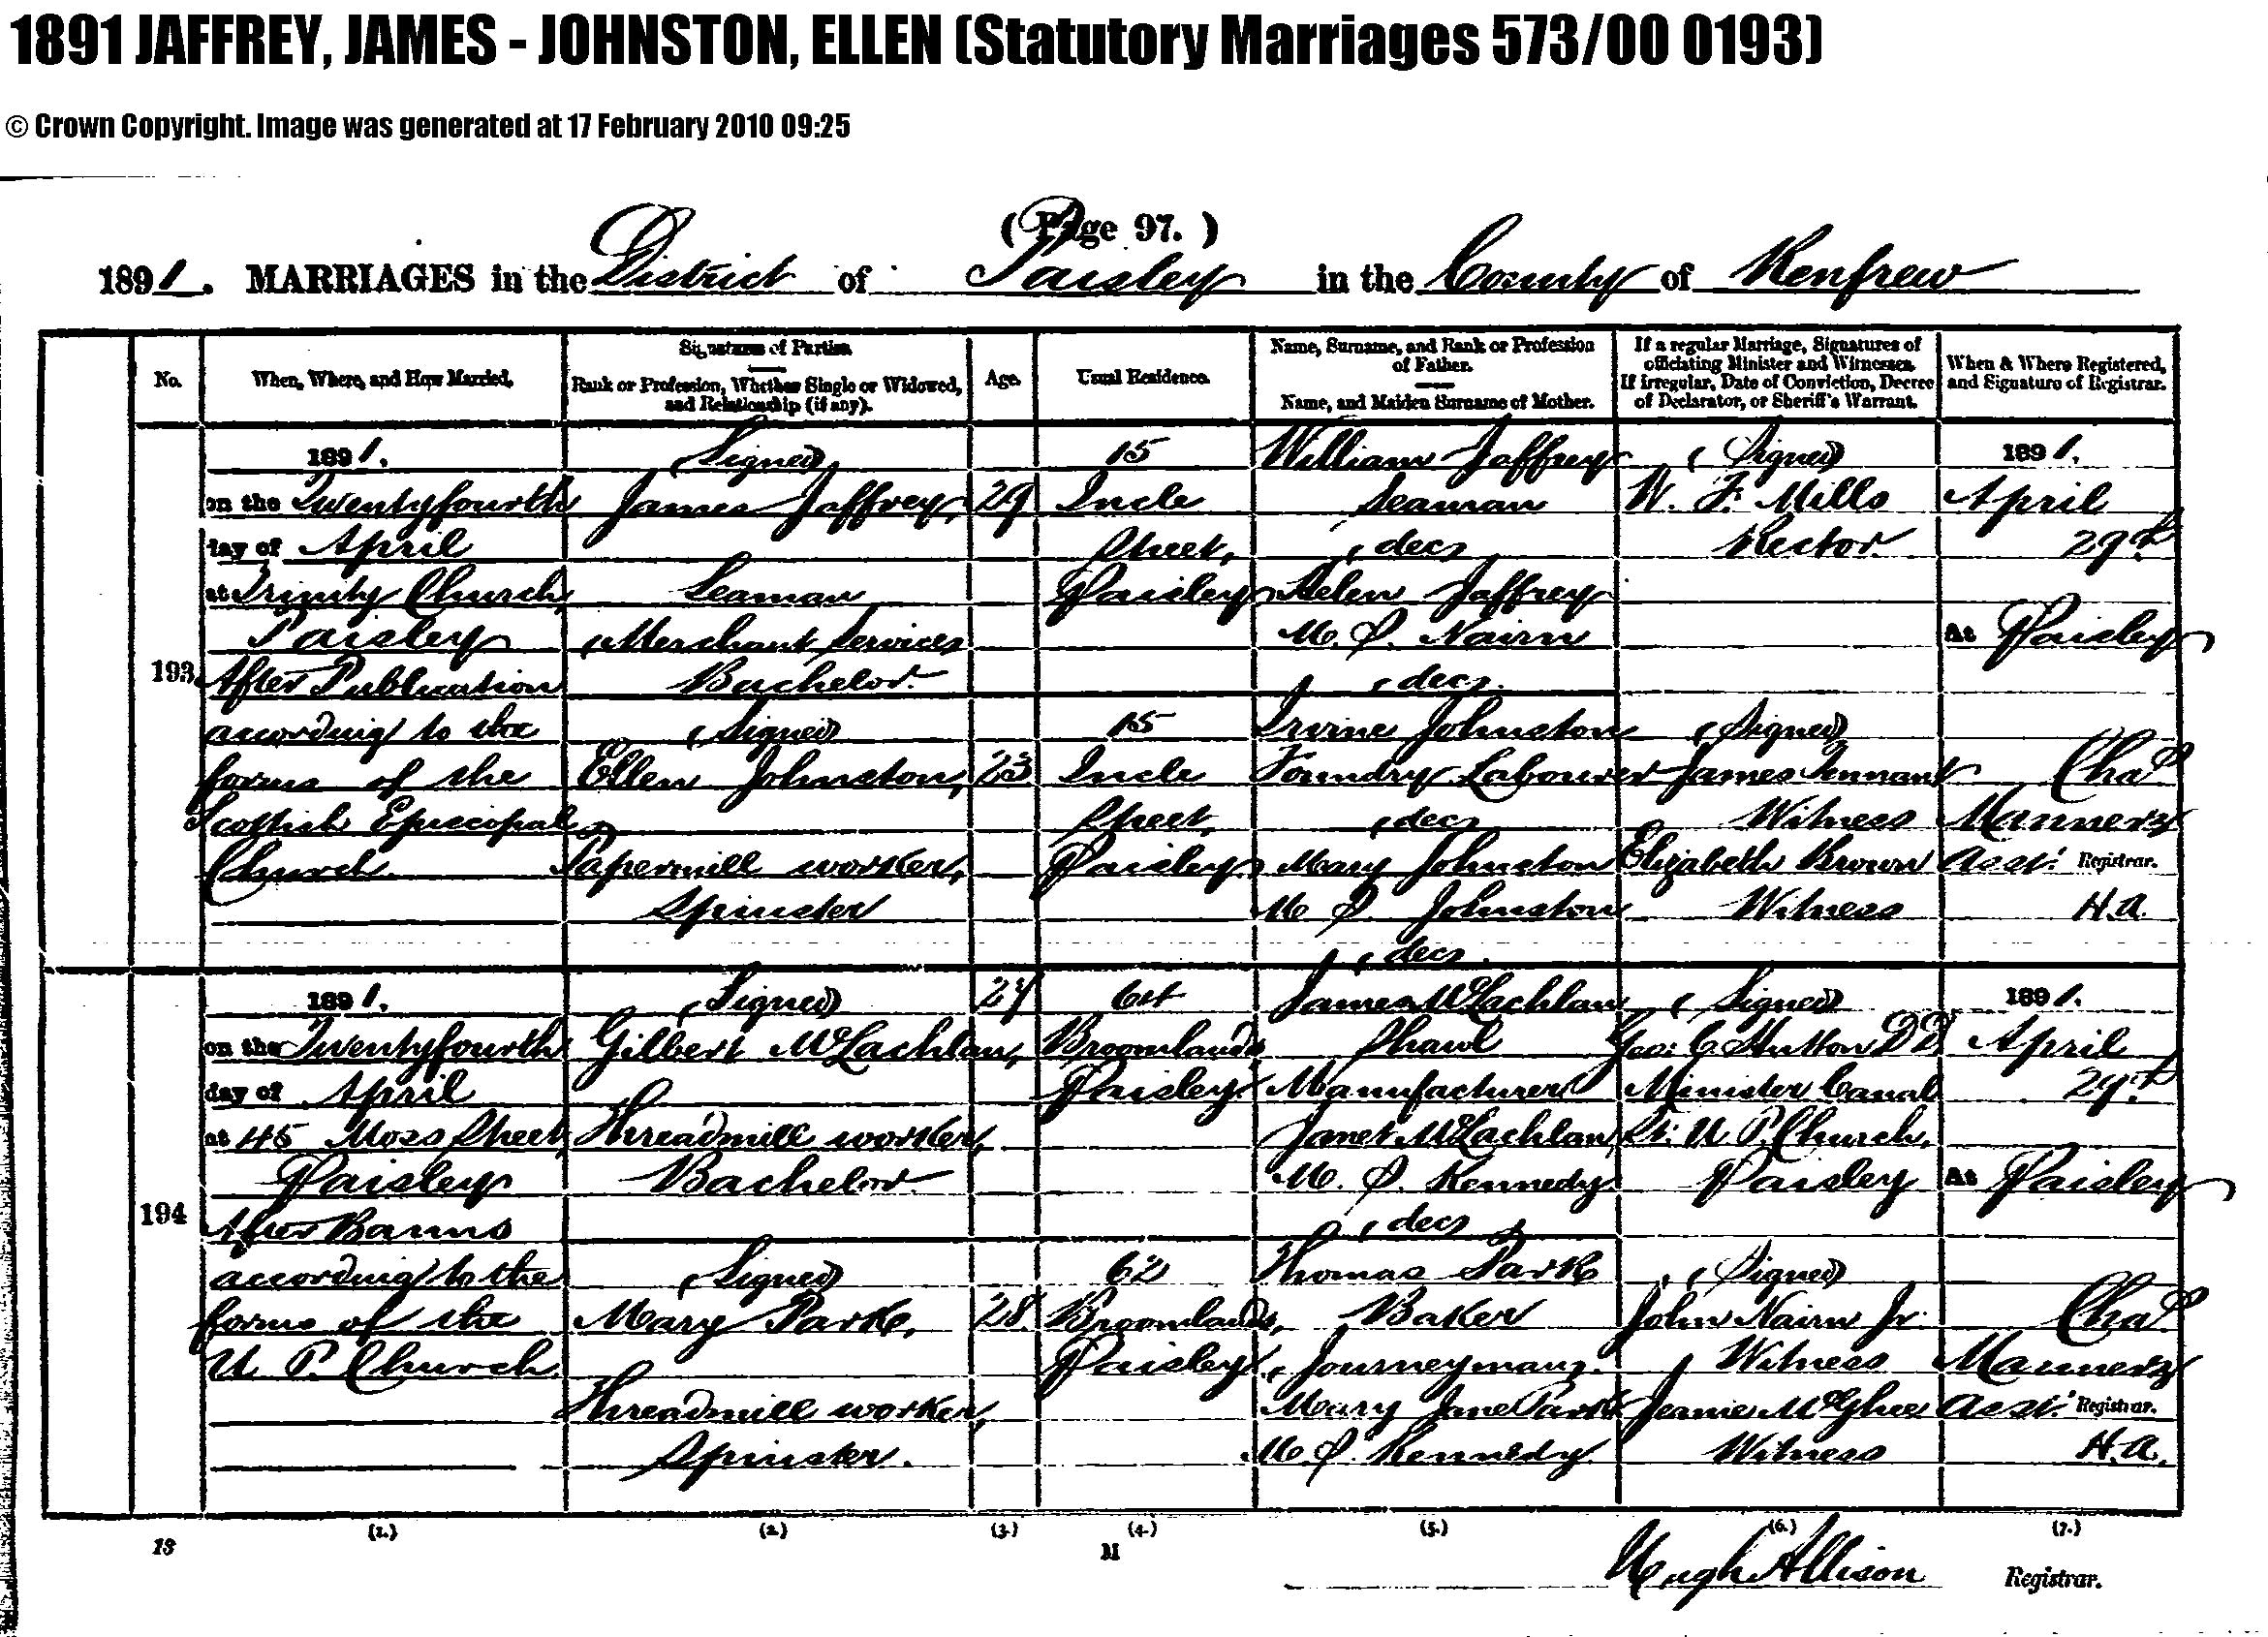 1891 JAFFREY, JAMES - JOHNSTON, ELLEN (Statutory Marriages 573/00 0193)
© Crown Copyright. Image was generated at 17 February 2010 09:25
(Page 97.)
1891. MARRIAGES in the District of Paisley in the County of Renfrew
No.
When, Where, and How Married.
Signatures of Parties.
Rank or Profession, Whether Single or Widowed,
and Relationship (if any).
Age.
Usual Residence.
Name, Surname, and Rank or Profession
of Father.
Name, and Maiden Surname of Mother.
If a regular Marriage, Signatures of
officiating Minister and Witnesses.
If irregular, Date of Conviction, Decree
of Declarator, or Sheriff's Warrant.
When & Where Registered,
and Signature of Registrar.
193
1891.
on the Twentyfourth
day of April
at Trinity Church,
Paisley
After Publication
according to the
forms of the
Scottish Episcopal
Church.
(Signed)
James Jaffrey,
Seaman
(Merchant Service)
Bachelor.
(Signed)
Ellen Johnston,
Papermill worker,
Spinster
29
23
15
Incle
Street,
Paisley
15
Incle
Street,
Paisley
William Jaffrey
Seaman
(dec)
Helen Jaffrey
M. S. Nairn
(dec).
Irvine Johnston
Foundry Labourer
(dec)
Mary Johnston
M. S. Johnston
(dec).
(Signed)
W. F. Mills
Rector
(Signed)
James Tennant
Witness
Elizabeth Brown
Witness
1891.
April
29th
At Paisley
Chas
Manners
Asst. Registrar.
H.A.
194
1891.
on the Twentyfourth
day of April
at 45 Moss Street,
Paisley
After Banns
according to the
forms of the
U. P. Church
(Signed)
Gilbert McLachlan,
Threadmill worker,
Bachelor
(Signed)
Mary Park,
Threadmill worker,
Spinster.
27
28
64
Broomlands,
Paisley
62
Broomlands,
Paisley
James McLachlan
Shawl
Manufacturer
Janet McLachlan,
M. S. Kennedy
(dec)
Thomas Park
Baker
(Journeyman).
Mary Jane Park
M. S. Kennedy
(Signed)
Geo: C. Hutton D D.
Minister Canal
St: U. P. Church,
Paisley
(Signed)
John Nairn Jr.
Witness
Jeanie McGhee
Witness
1891.
April
29th
At Paisley
Chas
Manners
Asst. Registrar.
H.A.
(1.) (2.) (3.) (4.) (5.) (6.) (7.)
13
M
Hugh Allison Registrar.